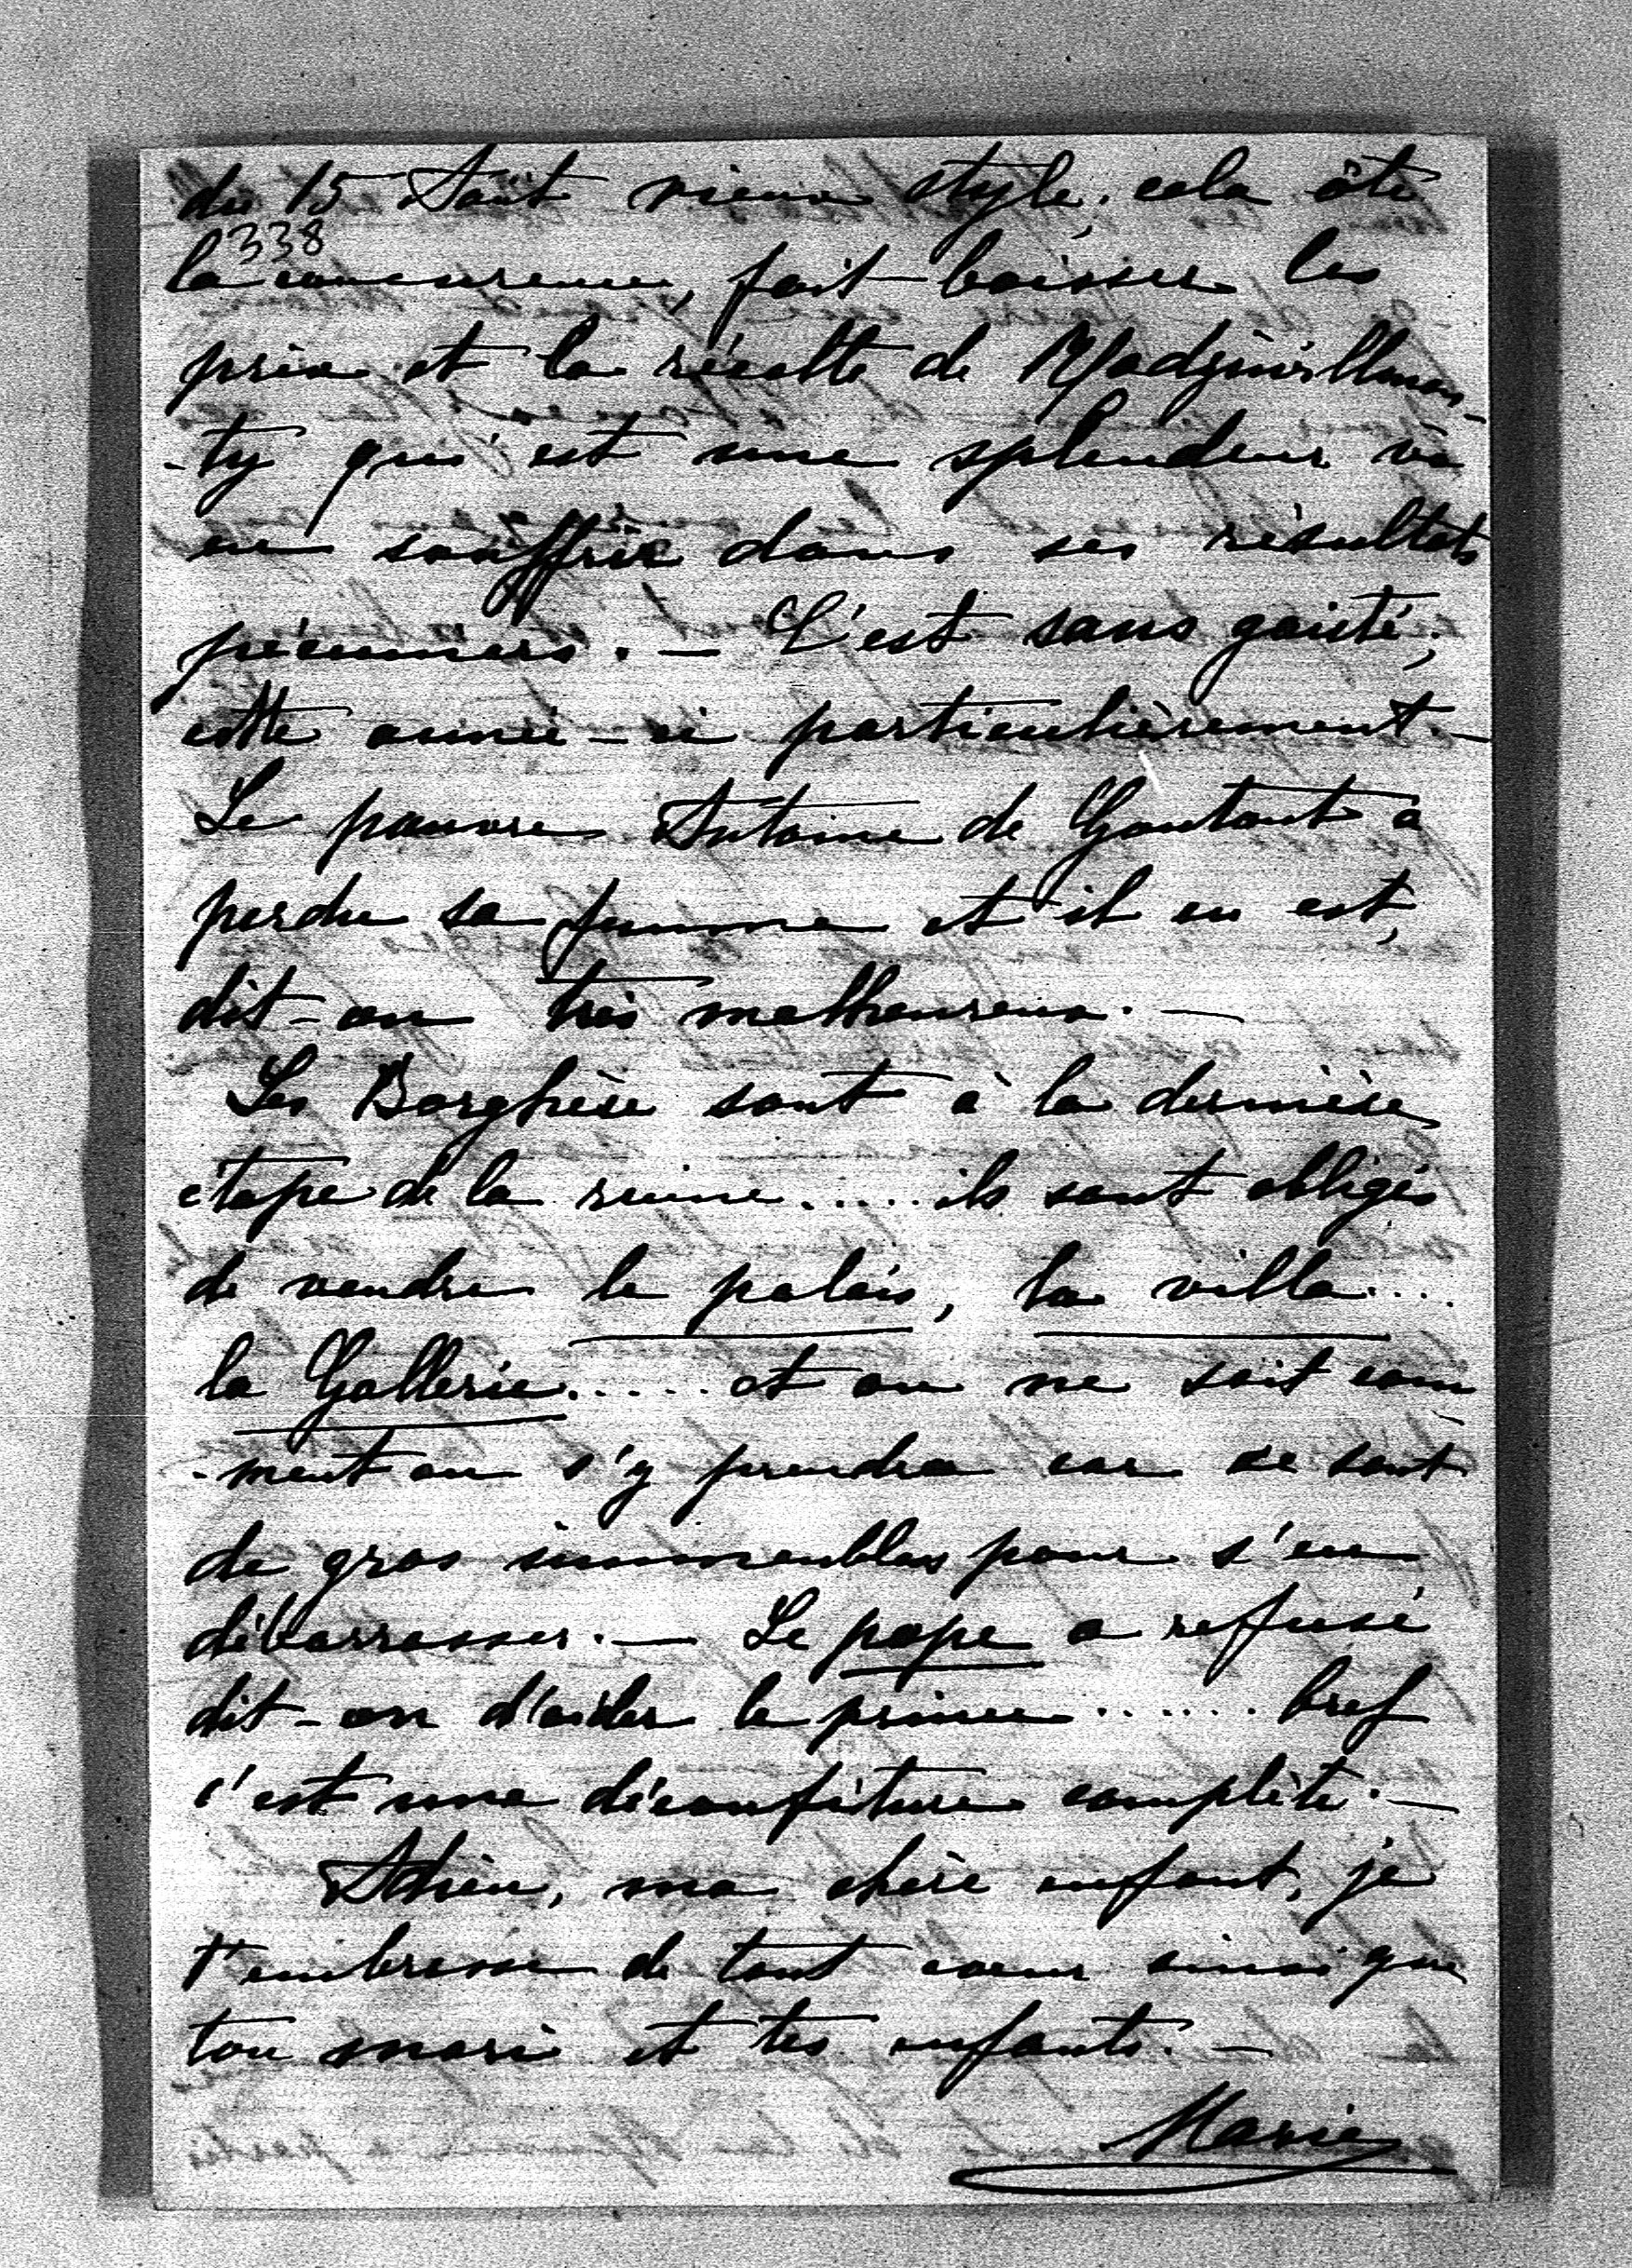 du 15 Août vieux style, cela ôte
338
la concurrence, fait baisser les
prix et la récolte de
-ty qui est une splendeur va
en souffrir dans ses résultats
pécuniers. — C'est sans gaité,
cette année-ci particulièrement. —
Le pauvre Antoine de Gontaut a
perdu sa femme et il en est,
dit-on très malheureux. —
Les Borghèse sont à la dernière
étape de la ruine..... ils sont obligés
de vendre le palais, la villa....
la Gallerie..... et on ne sait com
-ment on s'y prendra car ce sont
de gros immeubles pour s'en
débarrasser. — Le pape a reffusé
dit-on d'aider le prince...... bref
c'est une déconfiture complète. —
Adieu, ma chère enfant, je
t'embrasse de tout cœur ainsi que
ton mari et tes enfants. —
Marie